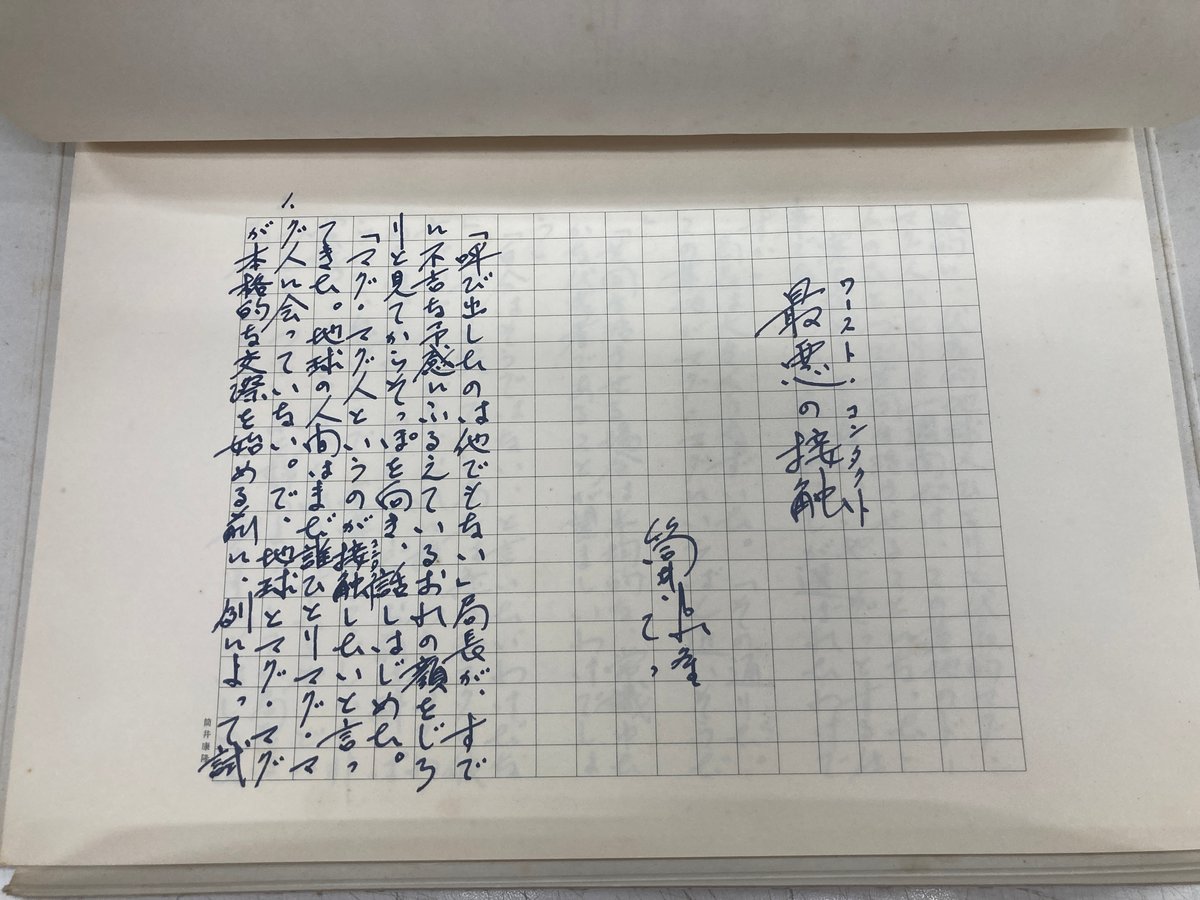 ワースト・コンタクト
最悪の接触
筒井康隆
「呼び出したのは他でもない」局長が、すで
に不吉な予感にふるえているおれの顔をじろ
りと見てからそっぽを向き、話しはじめた。
コンタクト
「マグ・マグ人というのが接触したいと言っ
てきた。地球の人間はまだ誰ひとりマグ・マ
グ人に会っていない。で、地球とマグ・マグ
が本格的な交際を始める前に、例によって試
1.
筒井康隆